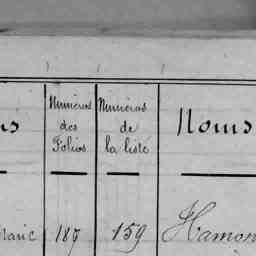 Numéros des Folios
Numéros de la liste
Noms
187 159 Hamon